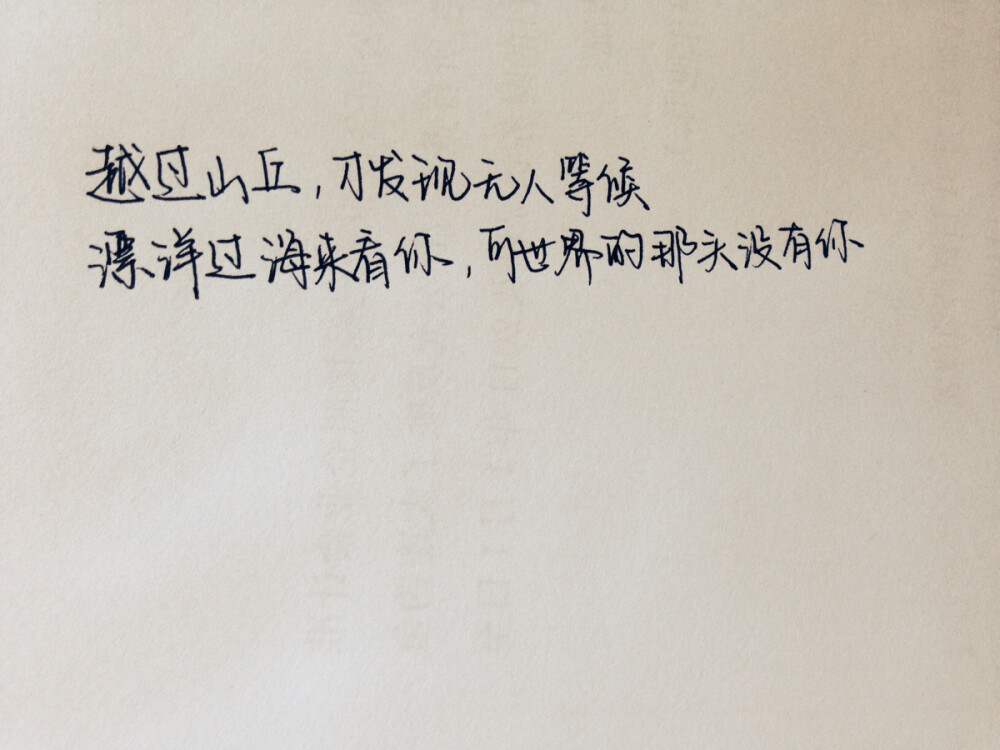 越过山丘，才发现无人等候
漂洋过海来看你，可世界的那头没有你